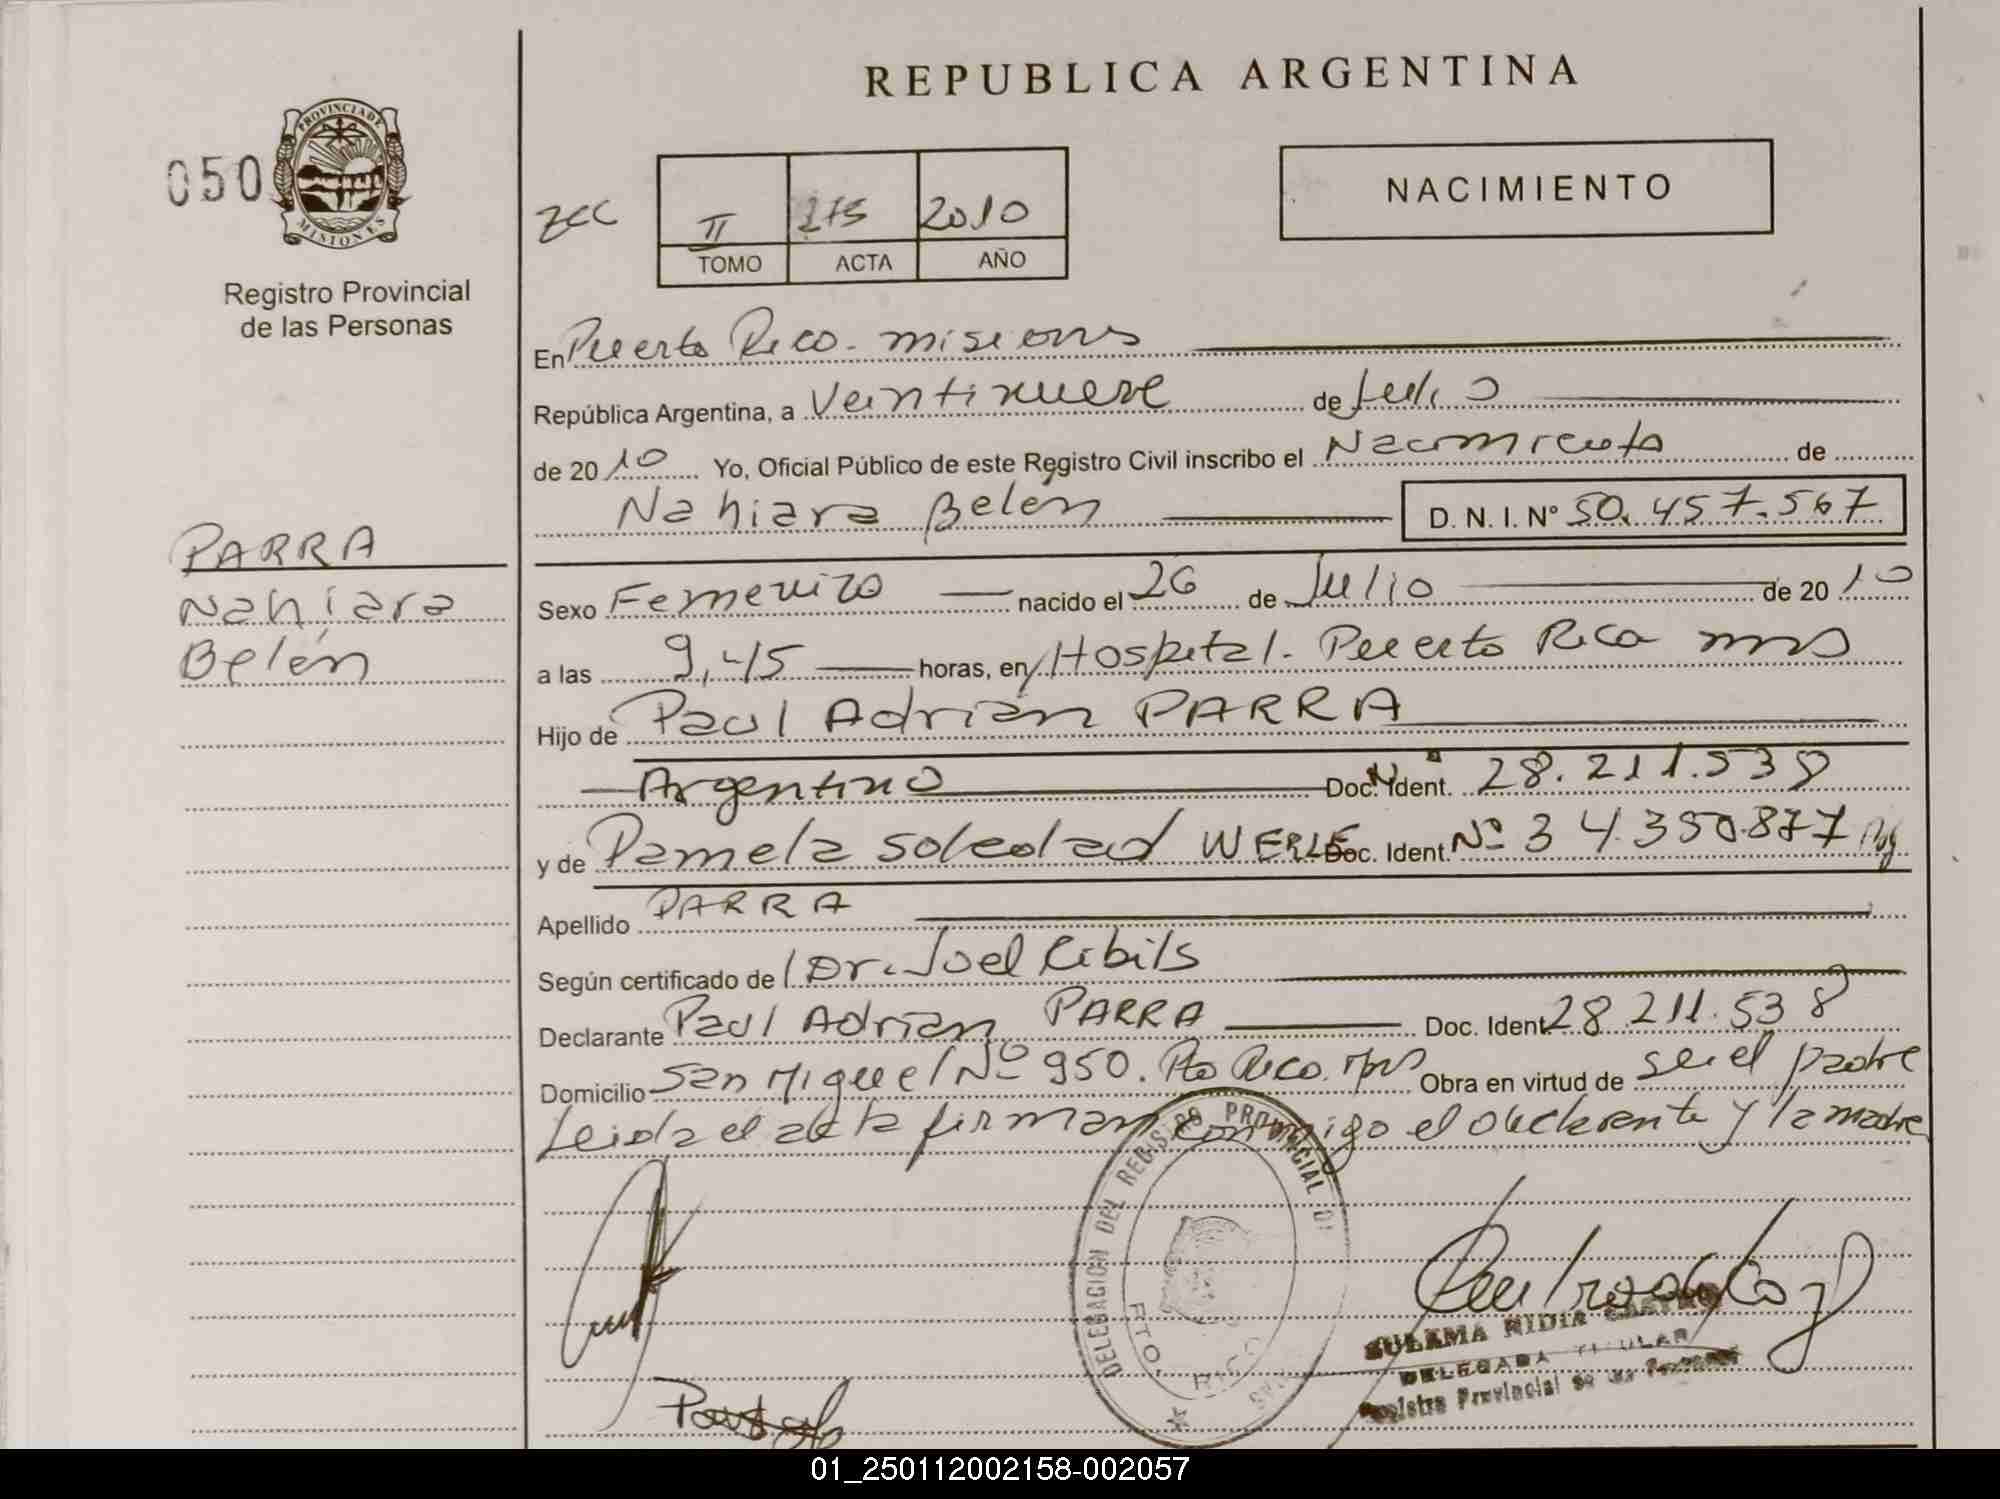 REPUBLICA ARGENTINA
050
PROVINCIA DE
MISIONES
Registro Provincial
de las Personas
II 275 2010
TOMO ACTA AÑO
NACIMIENTO
En Puerto Rico - misiones
República Argentina, a Veintinueve de Julio
de 20 10 Yo, Oficial Público de este Registro Civil inscribo el Nacimiento de
Nahiara Belén D. N. I. N° 50.457.567
PARRA
Nahiara
Belén
Sexo Femenino nacido el 26 de Julio de 20 10
a las 9,45 horas, en Hospital - Puerto Rico mns
Hijo de Paul Adrián PARRA
Argentino Doc. Ident. Nº 28.211.538
y de Pamela Soledad WERLE Doc. Ident. Nº 34.350.877
Apellido PARRA
Según certificado de Dr. Joel Cibils
Declarante Paul Adrian PARRA Doc. Ident. 28.211.538
Domicilio San Miguel Nº 950. Pto Rico. mns Obra en virtud de ser el padre
Leida el acta firman conmigo el declarante y la madre
DELEGACION DEL REGISTRO PROVINCIAL DE
PTO. RICO
SULEMA NIDIA CASTRO
DELEGADA TITULAR
Registro Provincial de las Personas
01_250112002158-002057